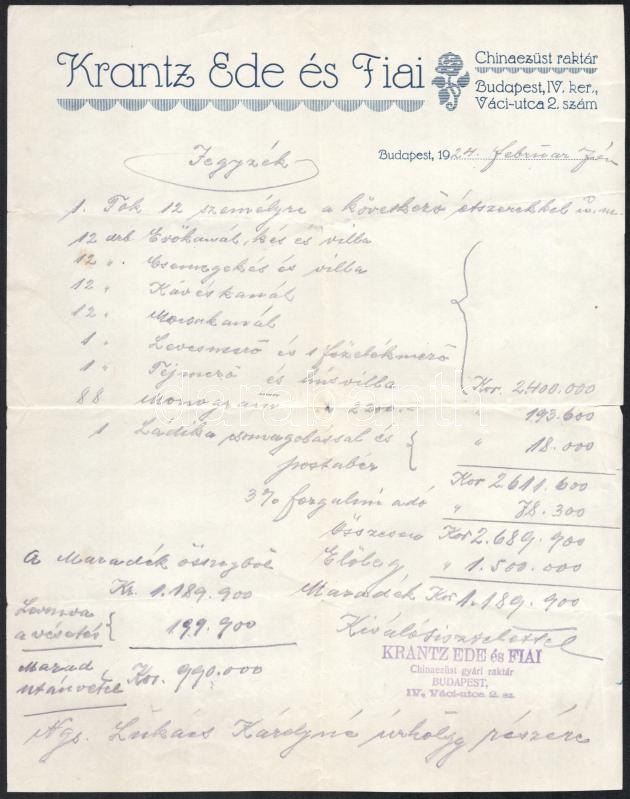 Krantz Ede és Fiai
Chinaezüst raktár
Budapest, IV. ker.,
Váci-utca 2. szám
Budapest, 1924. február
Jegyzék
1. Tok 12 személyre a következő étszerekkel u.m.
12 drb Evőkanál, kés és villa
12 " Csemegekés és villa
12 " Kávéskanál
12 " Moccakanál
1 " Levesmerő és 1 főzelékmerő
1 " Tejmerő és húsvilla Kor. 2400.000
88 Monogram a 2200.- " 193.600
1 Ládika csomagolással és
postabér " 18.000
Kor 2611.600
3% forgalmi adó " 78.300
Összesen Kor 2.689.900
Előleg " 1.500.000
Maradék Kor 1.189.900
A Maradék összegből
Kr. 1.189.900
Levonva
a vésetés 199.900
Marad
utánvétel Kor. 990.000
Kiváló tisztelettel
KRANTZ EDE és FIAI
Chinaezüst gyári raktár
BUDAPEST,
IV, Váci-utca 2. sz.
Ngs. Lukács Károlyné úrhölgy részére